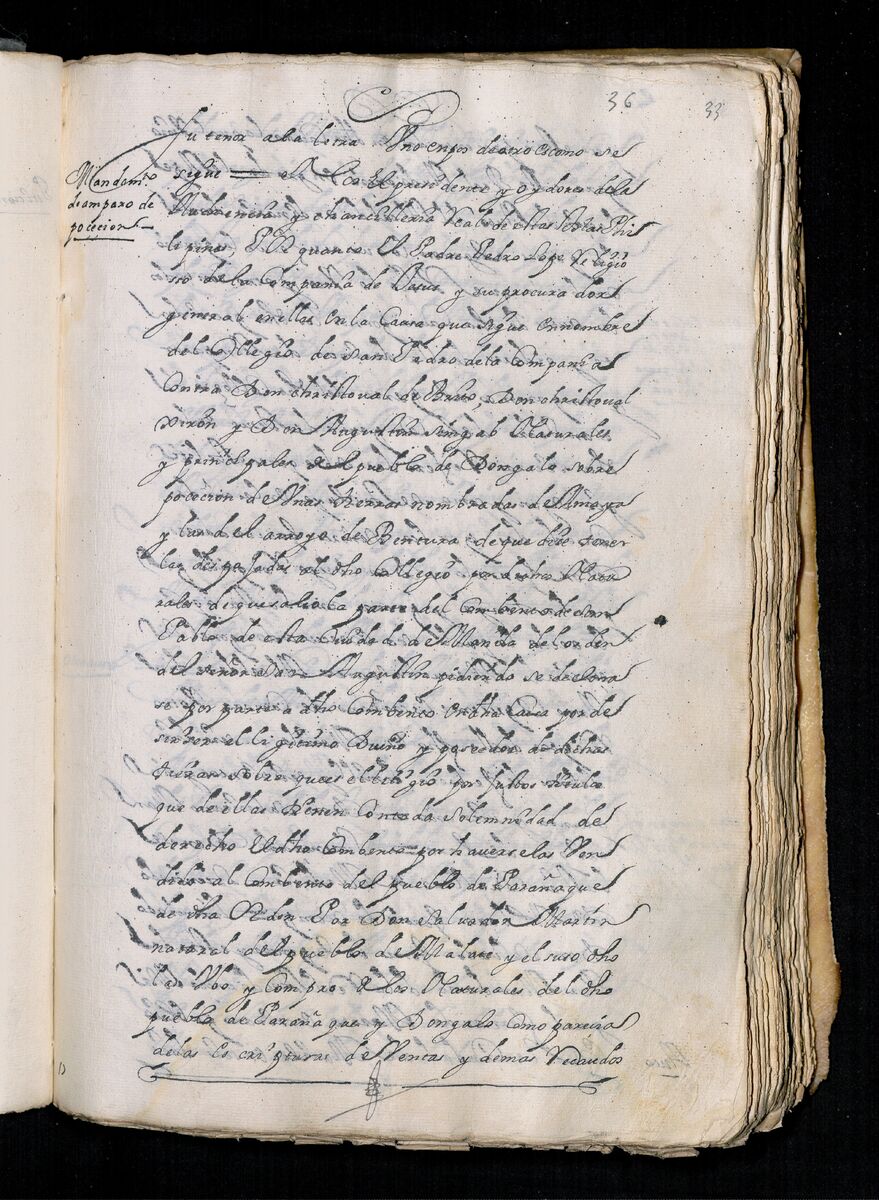 36 33
su tenor a la letra Uno enpos de otro es como se
Mandamto
de amparo de
pocecion
sigue = Nos El presidente y oydores de la
Audiencia y chancilleria Real de estas Yslas Phi
lipinas, Por quanto El Padre Pedro Lope Religio
sso de la Compania de Jesus y su procurador
general en illas en la Causa que sigue en nombre
del Collegio de san Pedro de la Compania
Contra Don christoval de Brito, Don christoval
Xiron y Don Augustin Naturales
y principales del pueblo de Dongalo sobre
pocecion de Unas tierras nombradas de Amaya
y las del arroyo de Bentura de que dice tener
las despojadas al dho Collegio por dichos Natu
rales de que salio la parte del Combento de san
Pablo de esta Ciudad de Manila del orden
del señor san Augustin pidiendo se declara
se por parte a dho Combento en dha Causa por de
señor el ligitimo Dueño y poseedor de dichas
tierras sobre que es el litigio por justos titulos
que de ellas tienen Con toda solemnidad de
derecho El dho Combento por haverselas Ven
dido al Combento del pueblo de Parañaque
de dha Orden Por Don Salvador Martin
natural del pueblo de Malate y el suso dho
las Ubo y Compro de los Naturales del dho
pueblo de Parañaque y Dongalo como parecia
de las Escripturas de Ventas y demas Recaudos